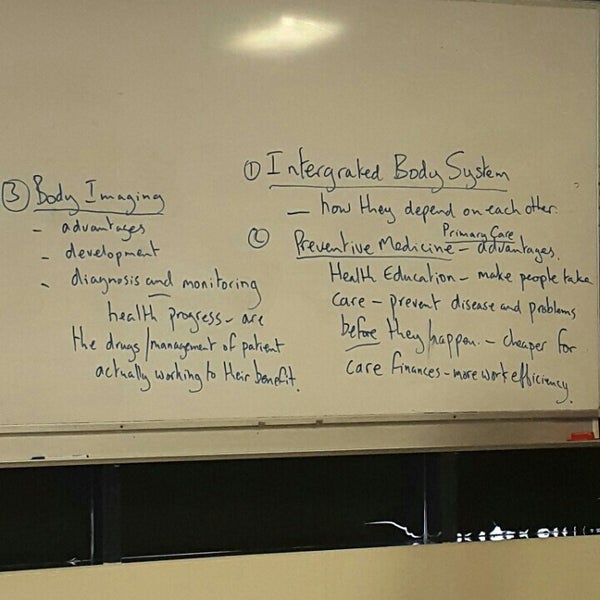 ① Intergrated Body System
— how they depend on each other.
Primary Care
② Preventive Medicine – advantages.
Health Education – make people take
care – prevent disease and problems
before they happen. – cheaper for
care finances – more work efficiency.
③ Body Imaging
- advantages
- development
- diagnosis and monitoring
health progress – are
the drugs/management of patient
actually working to their benefit.